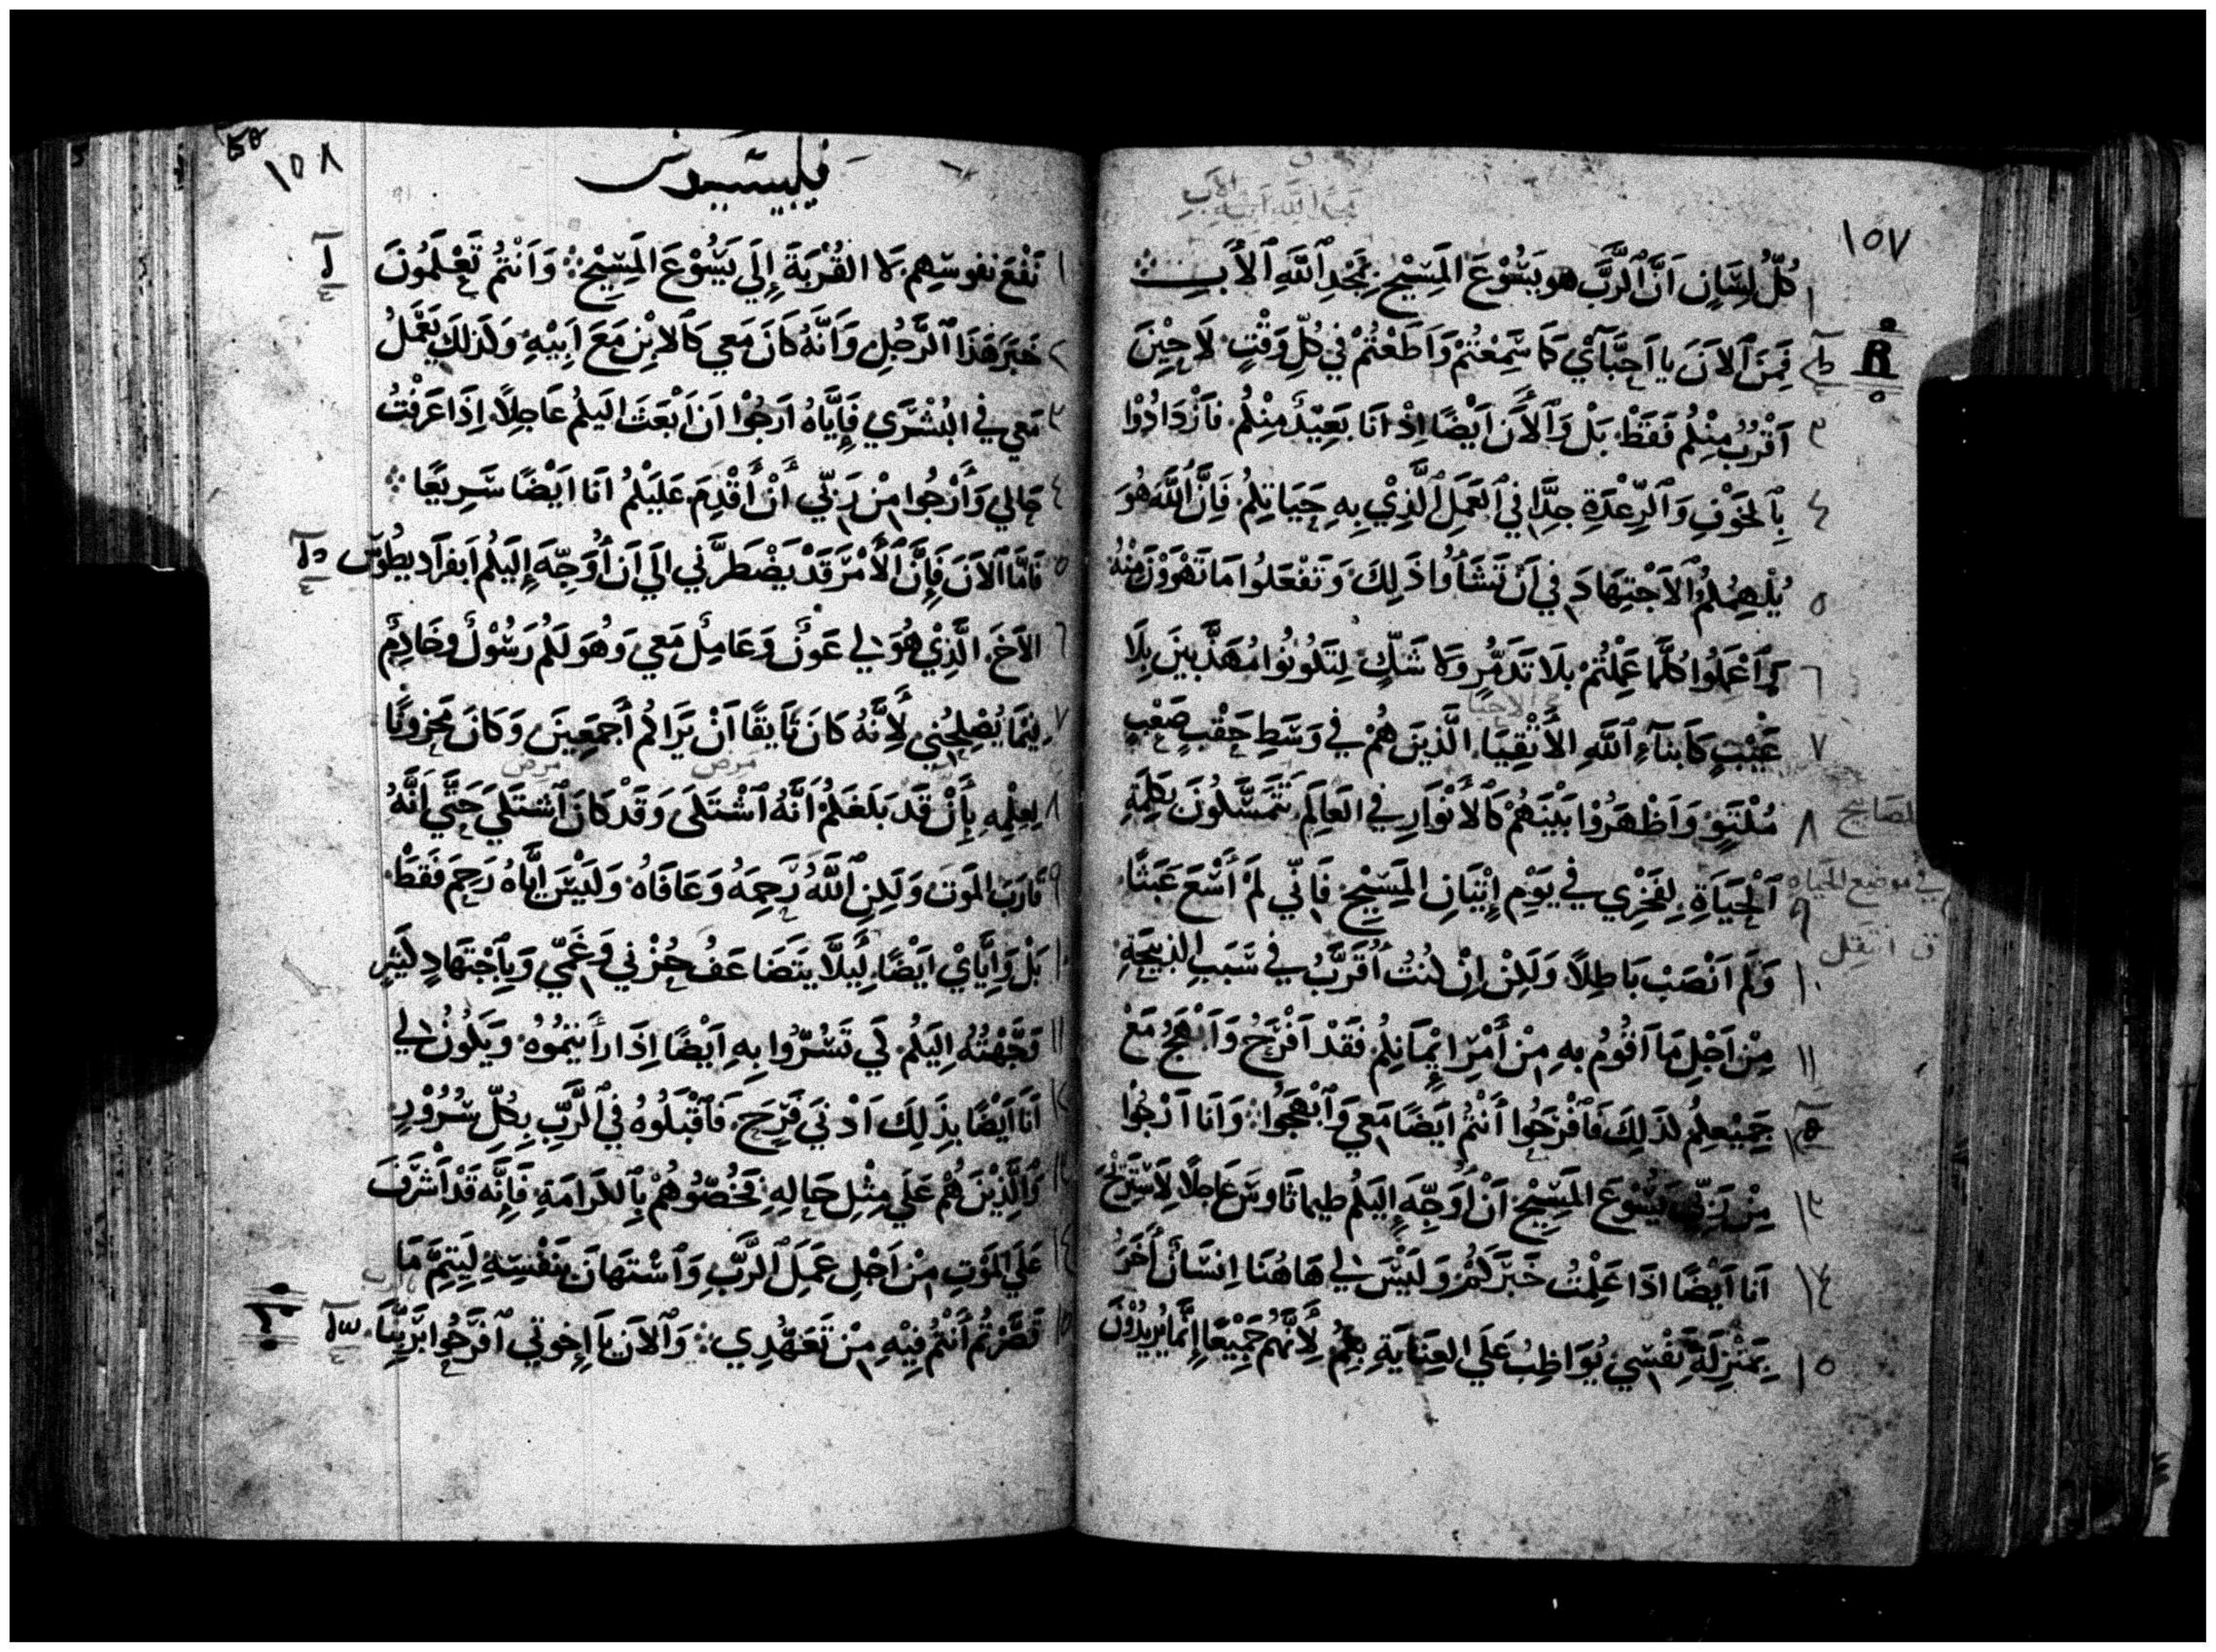 ١٥٧
كُلُّ لِسَانٍ اَنَّ ٱلرَّبَّ هو يَسُوْعَ المَسِيْحِ بِمَجْدِ ٱللَّهِ ٱلأَبِ ١
فَمِنَ ٱلاَنَ يا اَحِبَّآئي كَمَا سَمِعْتُمْ وَاَطَعْتُمْ في كُلِّ وَقْتٍ لَا حِيْنَ
٣ اَقْرُبُ مِنْكُم فَقَطْ بَلْ وَٱلأَنَ اَيْضًا اِذْ اَنَا بَعِيْدٌ مِنْكُم فَٱزْدَادُوْا
٤ بِٱلخَوْفِ وَٱلرِّعْدَةِ جِدًّا في ٱلعَمَلِ ٱلَّذِيْ بِهِ حَيَاتِكُم فَاِنَّ ٱللَّهَ هُوَ
٥ يُلْهِمُكُمُ ٱلاَجْتِهَادَ في اَنْ تَشَأُوا ذَلِكَ وَتَفْعَلُوا مَا تَهْوَوْنَ مِنْهُ
٦ اَعْمَلُوا كُلَّمَا عَمِلْتُمْ بِلَا تَذَمُّرٍ وَلا شَكٍّ لِتَكُونُوا مُهَذَّبِينَ بِلَا
٧ عَيْبٍ كَاَبنآءِ ٱللَّهِ الأَنْقِيَا الَّذِينَ هُمْ في وَسَطِ حَقْبٍ صَعْبٍ
٨ مُلْتَوٍ وَاَظْهَرُوْا بَيْنَهُمْ كَٱلأَنْوَارِ في العَالَمِ تَتَمَسَّكُونَ بِكَلِمَةِ
٩ ٱلْحَيَاةِ لِفَخْرِي في يَوْمِ إِتْيَانِ المَسِيْحِ فَاِنّي لَمْ أَسْعَ عَبَثًا
١٠ وَلَم اَنْصَبْ بَاطِلاً وَلَكِنْ اِنْ كُنْتُ اُقَرَّبُ في سَبَبِ الذبِيحَةِ
١١ مِنْ اَجْلِ مَا اَقُومُ بِهِ مِنْ أَمْرِ اِيْمَانِكُم فَقَدْ اَفْرَحُ وَاَبْهَجُ مَعْ
جَمِيْعِكُم لذَلِكَ فَٱفْرَحُوا أَنْتُم اَيضًا مَعي وَٱبْهَجُوا وَاَنا اَرْجُوا
١٣ مِنْ رَبّي يَسُوْعَ المَسِيْحِ أَنْ اُوَجِّهَ إِلَيكُم طيماثَاوس عَاجِلاً لِأَسْتَرْحَ
١٤ اَنا اَيْضًا اذَا عَلِمْتُ خَبَرَكُمْ وَلَيْسَ لي هَاهُنَا اِنسَانٌ اَخَرُ
١٥ بِمَنْزِلَةِ نَفْسي يُوَاظِبُ عَلَي العِنَايَةِ بِكُم لِأَنَّهُم جَمِيْعًا اِنَّمَا يُرِيدُوْنَ
المصابيح
في موضع الحياه
ق انتقل
١٥٨
فيليبسيوس
١ نَفْعَ نفوسِهِم لَا القُرْبَةَ إِلَي يَسُوْعَ المَسِيْحِ وَاَنْتُم تَعْلَمُونَ
٢ خَبَرَ هَذَا ٱلرَّجُلِ وَاَنَّهُ كَانَ مَعي كَٱلابْنِ مَعَ اَبِيْهِ وَلَذلِكَ يَعْمَلُ
٣ مَعي في البُشْرَي فَإِيَّاهُ اَرجُوْا اَن اَبْعَثَ اليكُم عَاجِلاً اِذَا عَرَفْتُ
٤ حَالي وَأَرْجُوا مِنْ رَبّي أَنْ أَقْدِمَ عَلَيْكُمْ اَنا اَيْضًا سَرِيْعًا
٥ فَامَّا ٱلاَنَ فَاِنَّ ٱلأَمْرَ قَدْ يَضْطَرَّني اِلَي اَنْ اُوَجِّهَ اِلَيكُم اَبفرَاديطُوس
٦ الاَخَ الَّذِيْ هُوَ لي عَونٌ وَعَامِلٌ مَعي وَهُوَ لَكُم رَسُوْلٌ وخَادِمٌ
٧ فِيْمَا يُصْلِحُني لأَنَّهُ كَانَ تَايِقًا اَنْ يَرَاكُم أَجمَعِينَ وَكَانَ مَحزونًا
مرض مرض
٨ لِعِلْمِهِ بِأَنْ قَد بَلَغَكُمْ اَنَّهُ ٱشْتَكَى وَقَدْ كَانَ ٱشتَكَي حَتَّي اَنَّهُ
٩ قَارَبَ المَوتَ وَلَكِنِ ٱللَّهُ رَحِمَهُ وَعَافَاهُ وَلَيْسَ اِيَّاهُ رَحِمَ فَقَطْ
١٠ بَلْ وَاِيَّايْ اَيْضًا لِيَلَّا يَتَضَاعَفُ حُزْني وَغَمّي وَبِٱجْتَهَادٍ كَثِيرٍ
١١ وَجَّهْتُهُ اِلَيكُم كَي تَسُرُّوا بِهِ اَيْضًا اِذَا رأَيتُمُوهُ وَيَكُوْنُ لي
١٢ أَنَا اَيْضًا بِذَلِكَ اَدْنَي فَرَجٍ فَٱقْبَلُوهُ في ٱلرَّبِّ بِكُلِّ سُرُوْرٍ
١٣ وَالَّذِيْنَ هُمْ عَلَي مِثْلِ حَالِهِ فَخُصُّوهُمْ بِٱلكَرَامَةِ فَاِنَّه قَدْ اَشْرَفَ
١٤ عَلَي المَوْتِ مِنْ اَجْلِ عَمَلِ ٱلرَّبِّ وَٱسْتَهَانَ بِنَفْسِهِ لِيَتِمَّ مَا
١٥ قَصَّرْتُم أَنْتُم فِيْهِ مِنْ تَعَهُّدِي وَٱلاَن يَا اِخوَتي ٱفْرَحُوا بِرَبِّنَا